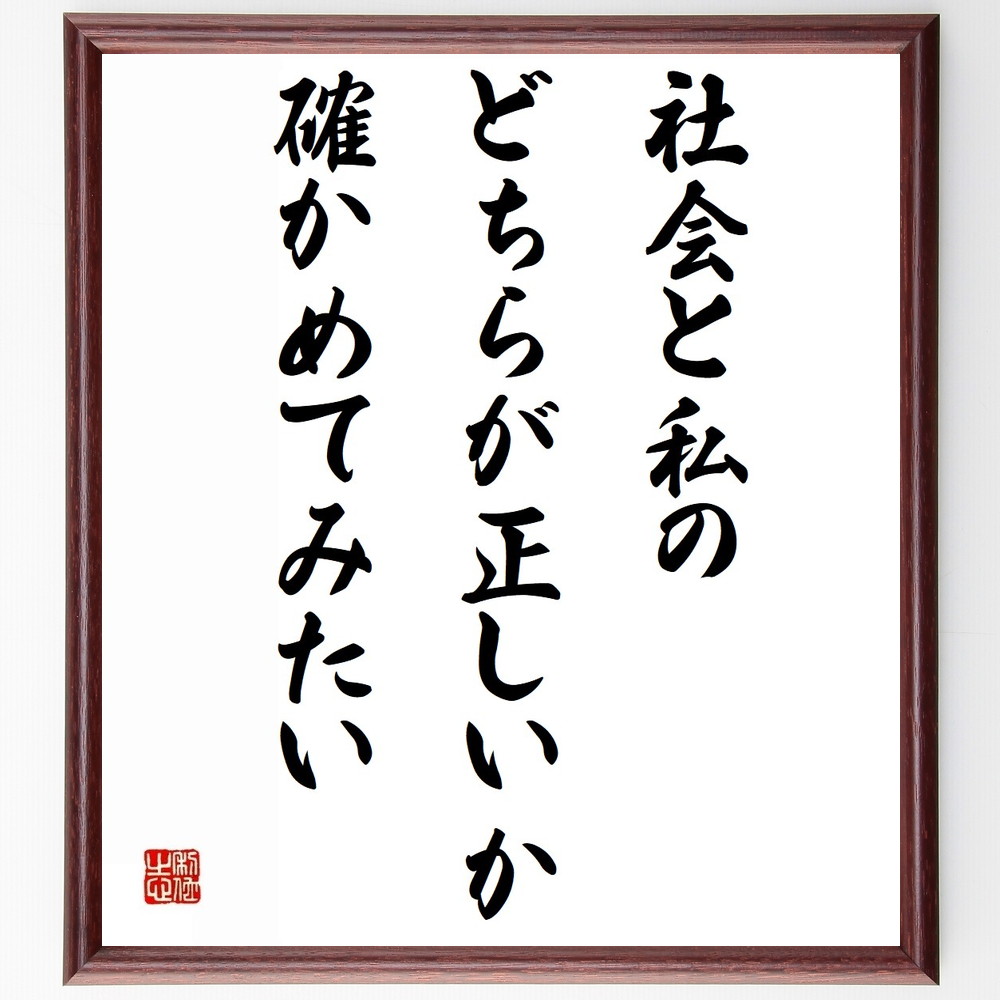 社会と私の
どちらが正しいか
確かめてみたい